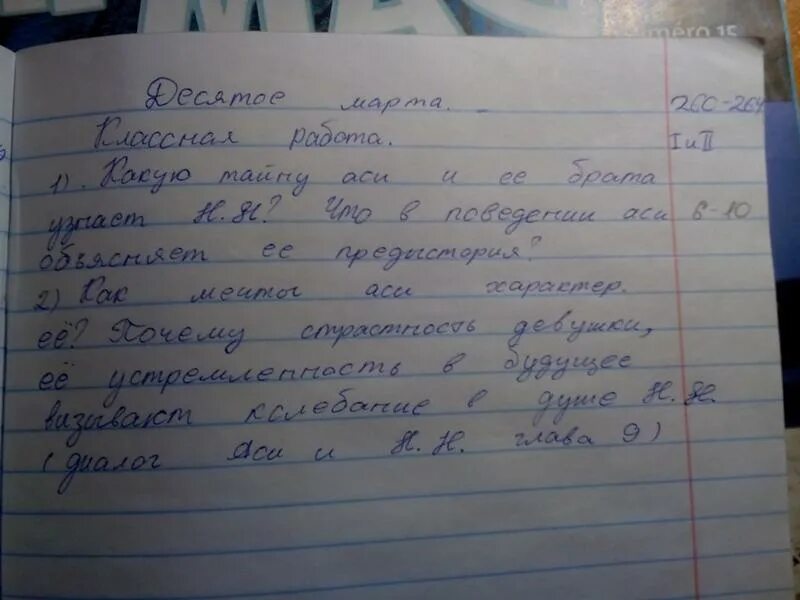 numéro 15
Десятое марта. 260-264
Классная работа. I и II
1). Какую тайну аси и ее брата
узнает Н.Н? Что в поведении аси 6-10
объясняет ее предыстория?
2) Как мечты аси характер.
её? Почему страстность девушки,
её устремленность в будущее
визывают колебание в душе Н.Н.
(диалог Аси и Н.Н. глава 9)